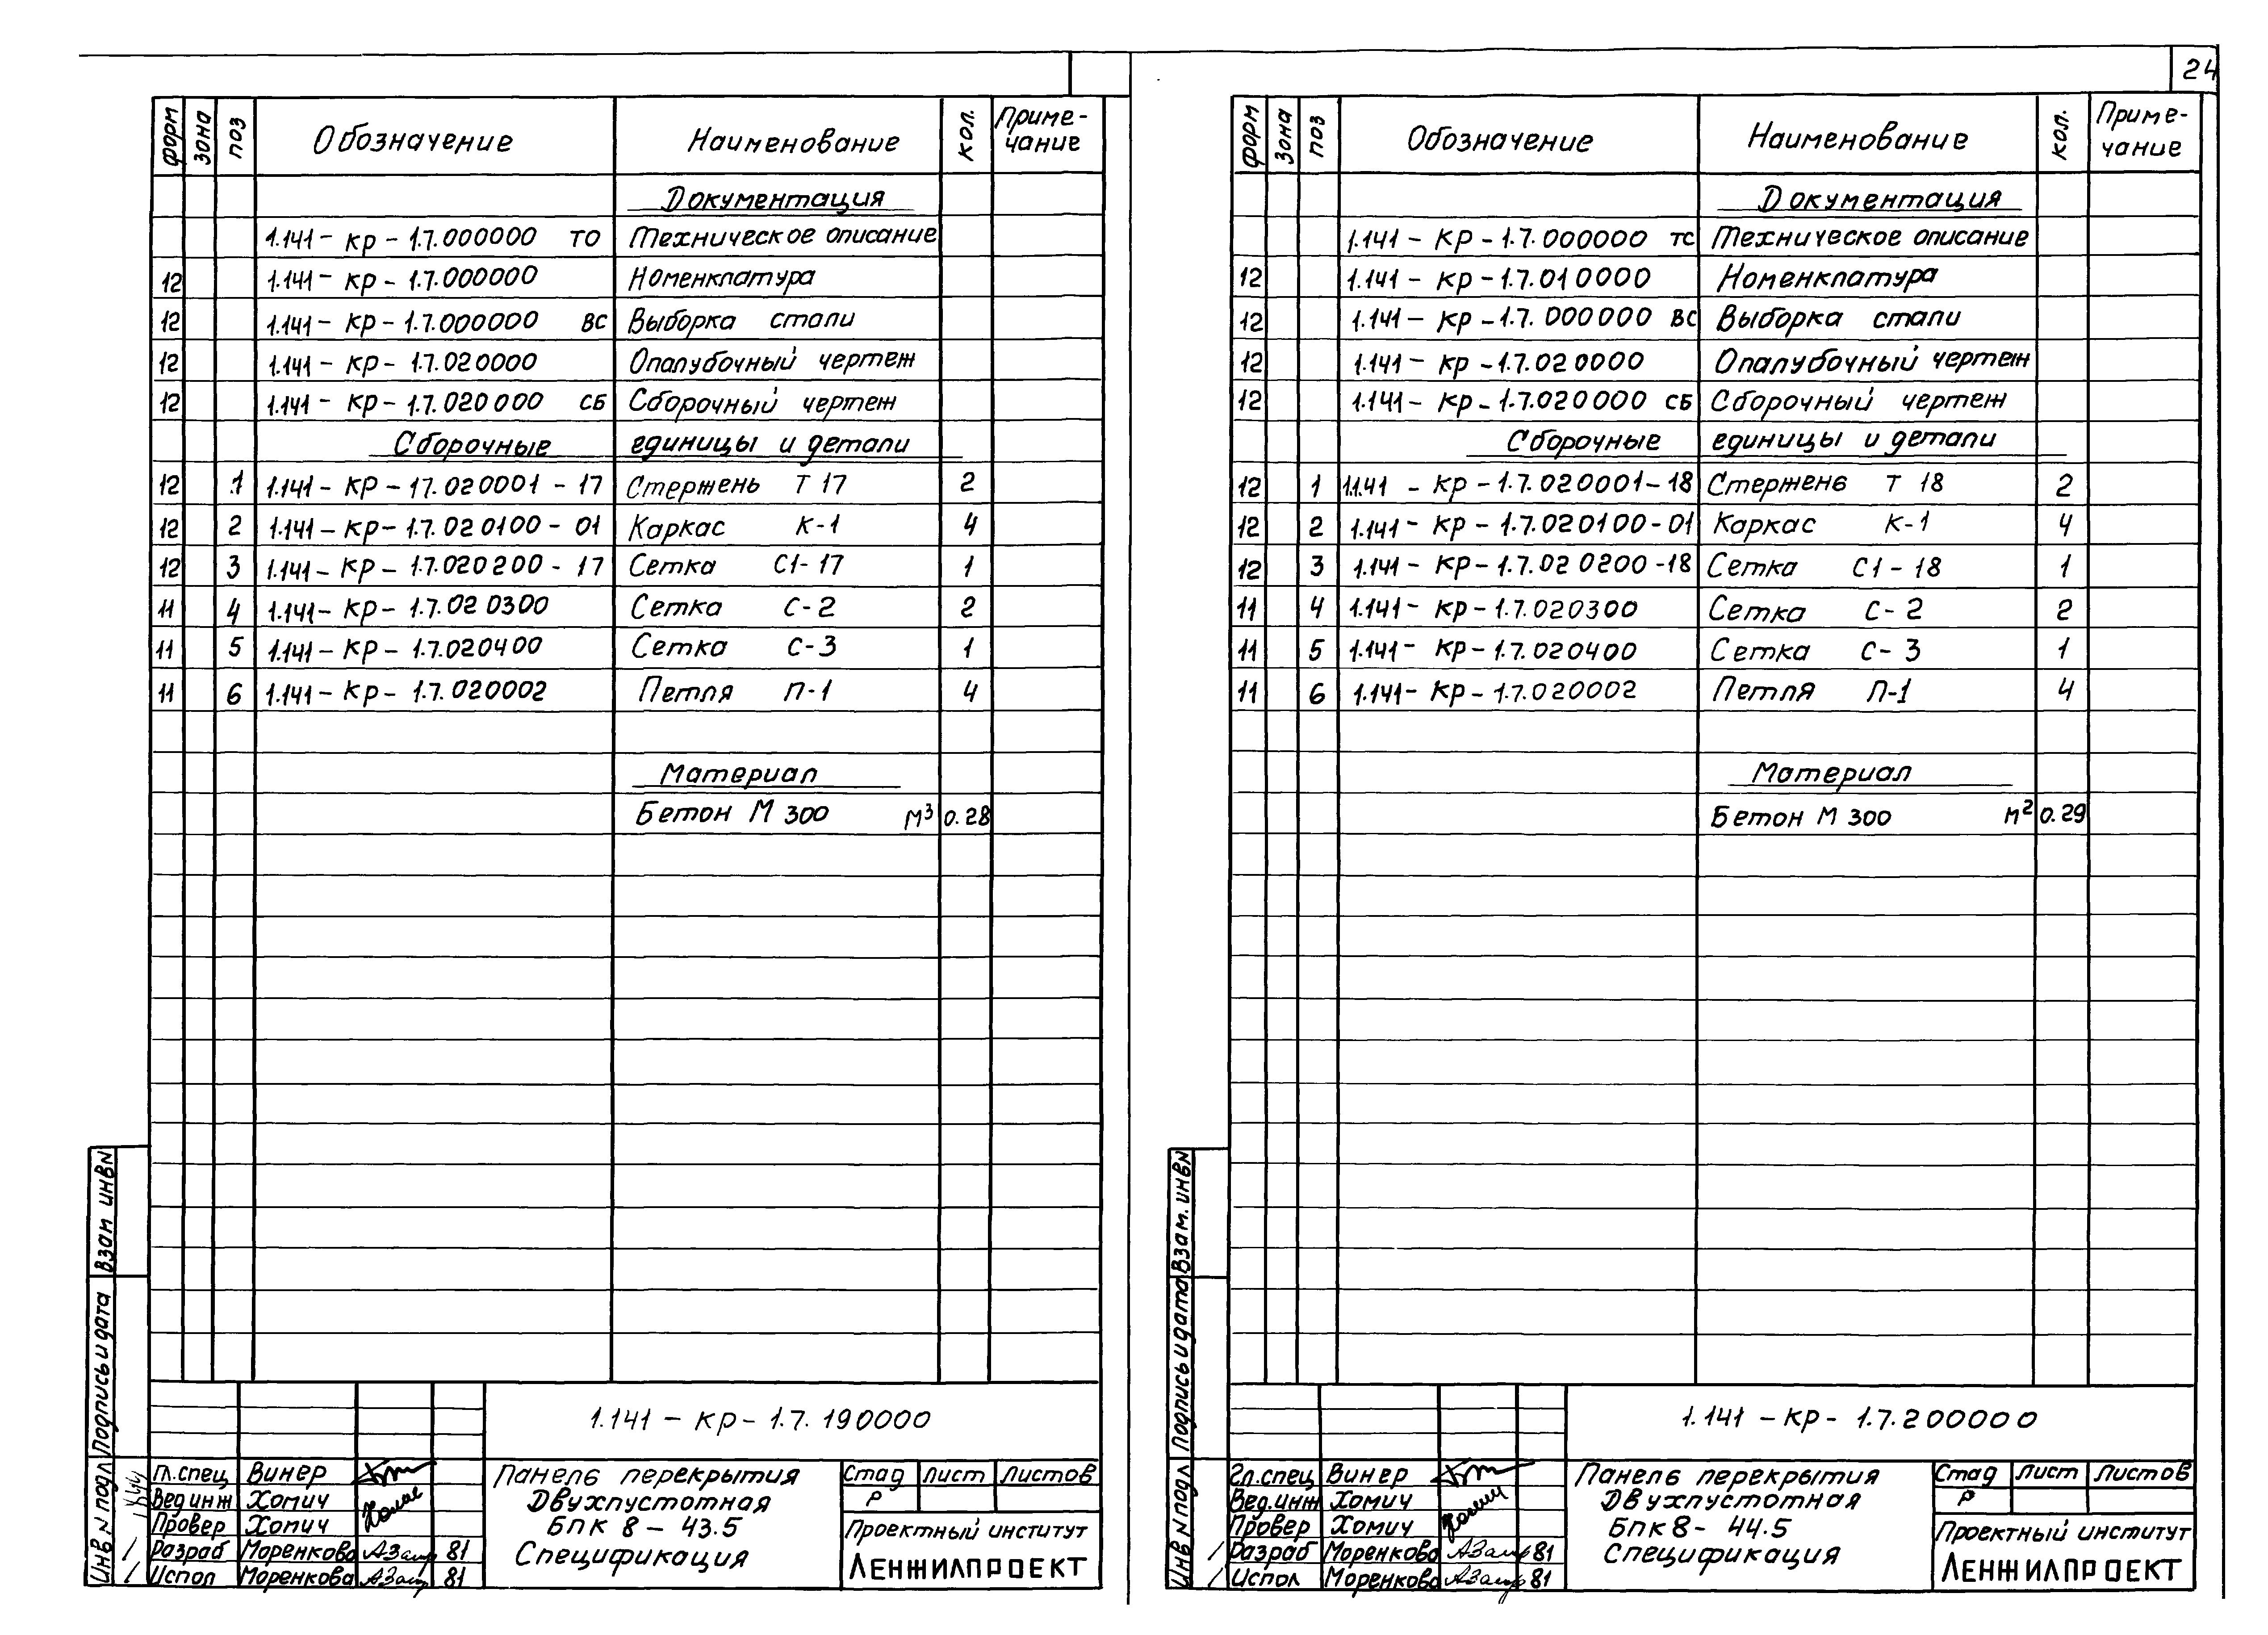 24
форм зона поз Обозначение Наименование кол. Приме-
чание
Документация
1.141 - кр - 1.7.000000 ТО Техническое описание
12 1.141 - кр - 1.7.000000 Номенклатура
12 1.141 - кр - 1.7.000000 ВС Выборка стали
12 1.141 - кр - 1.7.020000 Опалубочный чертеж
12 1.141 - кр - 1.7.020000 СБ Сборочный чертеж
Сборочные единицы и детали
12 1 1.141 - КР - 17.020001 - 17 Стержень Т 17 2
12 2 1.141 - КР - 1.7.020100 - 01 Каркас К-1 4
12 3 1.141 - КР - 1.7.020200 - 17 Сетка С1-17 1
11 4 1.141 - КР - 1.7.020300 Сетка С-2 2
11 5 1.141 - КР - 1.7.020400 Сетка С-3 1
11 6 1.141 - КР - 1.7.020002 Петля П-1 4
Материал
Бетон М 300 м³ 0.28
Взам инв N
Подпись и дата
Инв N подл
1.141 - кр - 1.7.190000
Гл.спец Винер
Вед инж Хомич
Провер Хомич
Разраб Моренкова 81
Испол Моренкова 81
Панель перекрытия
Двухпустотная
Бпк 8 - 43.5
Спецификация
Стад Лист Листов
Р
Проектный институт
ЛЕНЖИЛПРОЕКТ
форм зона поз Обозначение Наименование кол. Приме-
чание
Документация
1.141 - кр - 1.7.000000 ТС Техническое описание
12 1.141 - кр - 1.7.010000 Номенклатура
12 1.141 - кр - 1.7.000000 ВС Выборка стали
12 1.141 - кр - 1.7.020000 Опалубочный чертеж
12 1.141 - кр - 1.7.020000 СБ Сборочный чертеж
Сборочные единицы и детали
12 1 1.1.41 - КР - 1.7.020001 - 18 Стержень Т 18 2
12 2 1.141 - КР - 1.7.020100-01 Каркас К-1 4
12 3 1.141 - КР - 1.7.020200-18 Сетка С1-18 1
11 4 1.141 - КР - 1.7.020300 Сетка С-2 2
11 5 1.141 - КР - 1.7.020400 Сетка С-3 1
11 6 1.141 - КР - 1.7.020002 Петля П-1 4
Материал
Бетон М 300 м² 0.29
Взам. инв N
Подпись и дата
Инв N подл
1.141 - кр - 1.7.200000
Гл.спец Винер
Вед.инж Хомич
Провер Хомич
Разраб Моренкова 81
Испол Моренкова 81
Панель перекрытия
Двухпустотная
Бпк 8 - 44.5
Спецификация
Стад Лист Листов
Р
Проектный институт
ЛЕНЖИЛПРОЕКТ